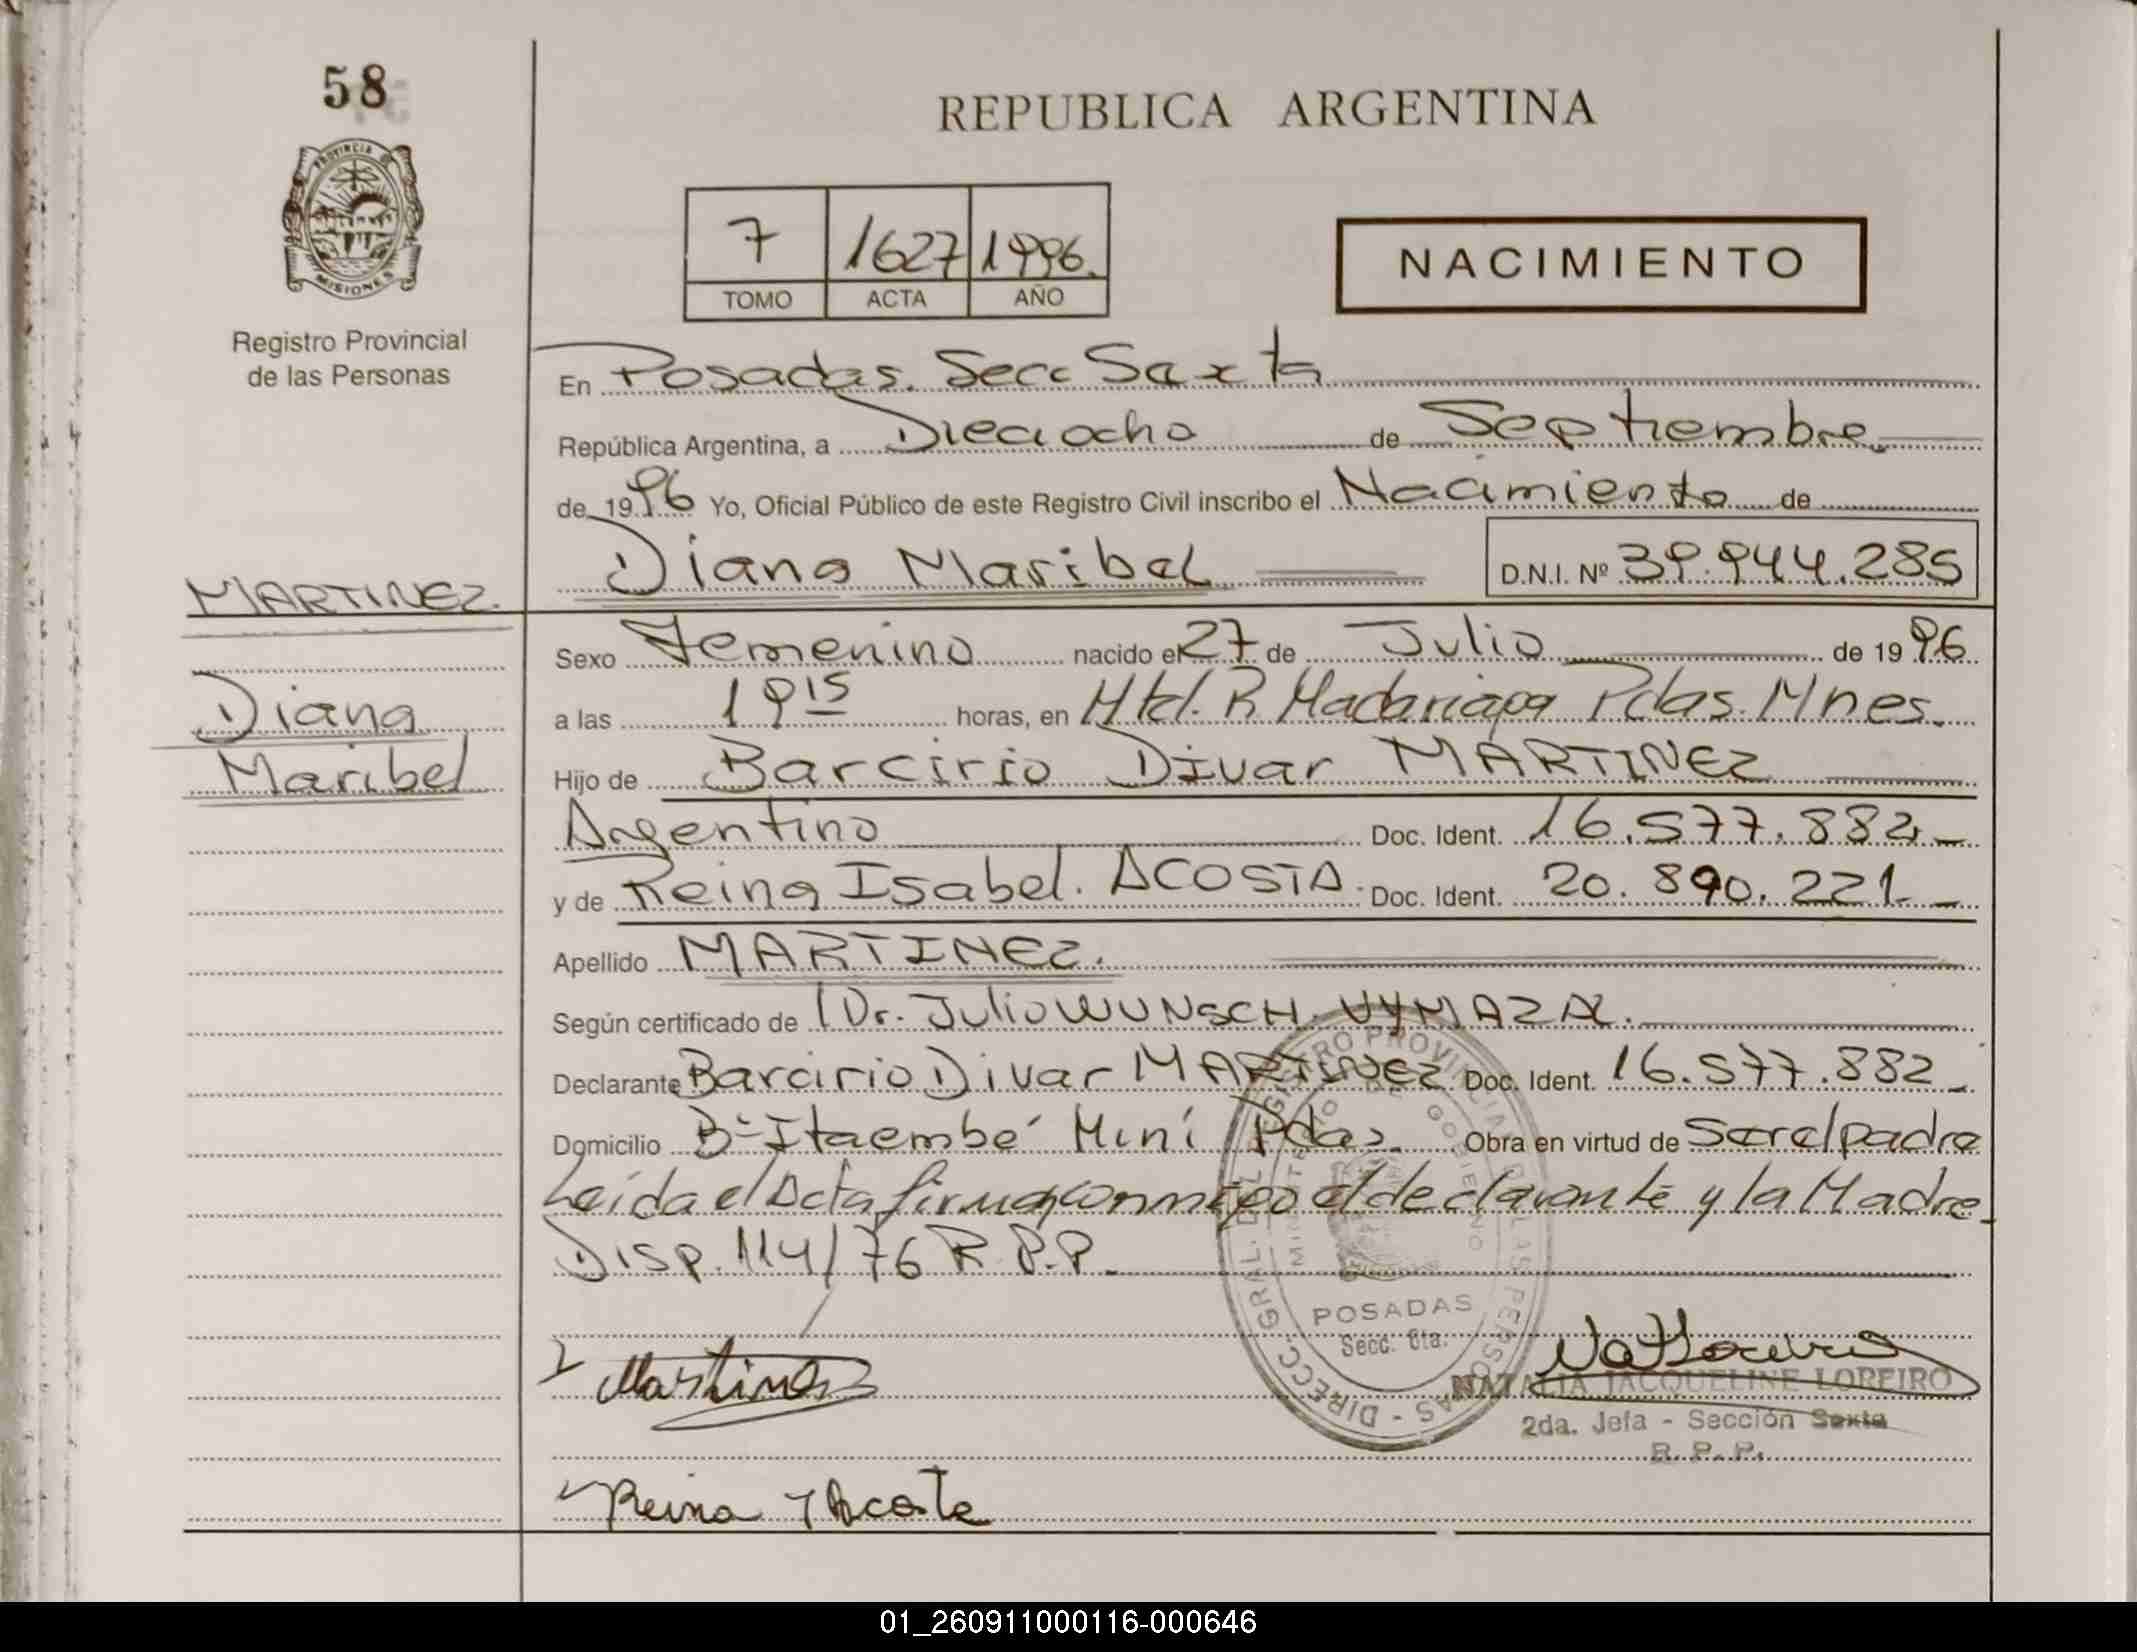 58
REPUBLICA ARGENTINA
PROVINCIA DE MISIONES
7 1627 1996.
TOMO ACTA AÑO
NACIMIENTO
Registro Provincial
de las Personas
En Posadas. Secc Sexta
República Argentina, a Dieciocho de Septiembre
de 1996 Yo, Oficial Público de este Registro Civil inscribo el Nacimiento de
Diana Maribel D.N.I. Nº 39.944.285
MARTINEZ.
Diana
Maribel
Sexo Femenino nacido el 27 de Julio de 1996
a las 19 15 horas, en Htal. R. Madariaga Pdas. Mnes.
Hijo de Barcirio Divar MARTINEZ
Argentino Doc. Ident. 16.577.882
y de Reina Isabel. ACOSTA. Doc. Ident. 20.890.221
Apellido MARTINEZ.
Según certificado de Dr. Julio WUNSCH. VYMAZAL.
Declarante Barcirio Divar MARTINEZ Doc. Ident. 16.577.882
Domicilio Bº Itaembé Miní Pdas. Obra en virtud de Ser el padre
Leída el Acta firman conmigo el declarante y la Madre
Disp. 114/76 R.P.P.
DIRECC. GRAL. DEL REGISTRO PROVINCIAL DE LAS PERSONAS
MINISTERIO DE GOBIERNO
POSADAS
Secc. 6ta.
Martinez
NATALIA JACQUELINE LOREIRO
2da. Jefa - Sección Sexta
R.P.P.
Reina I Acosta
01_260911000116-000646